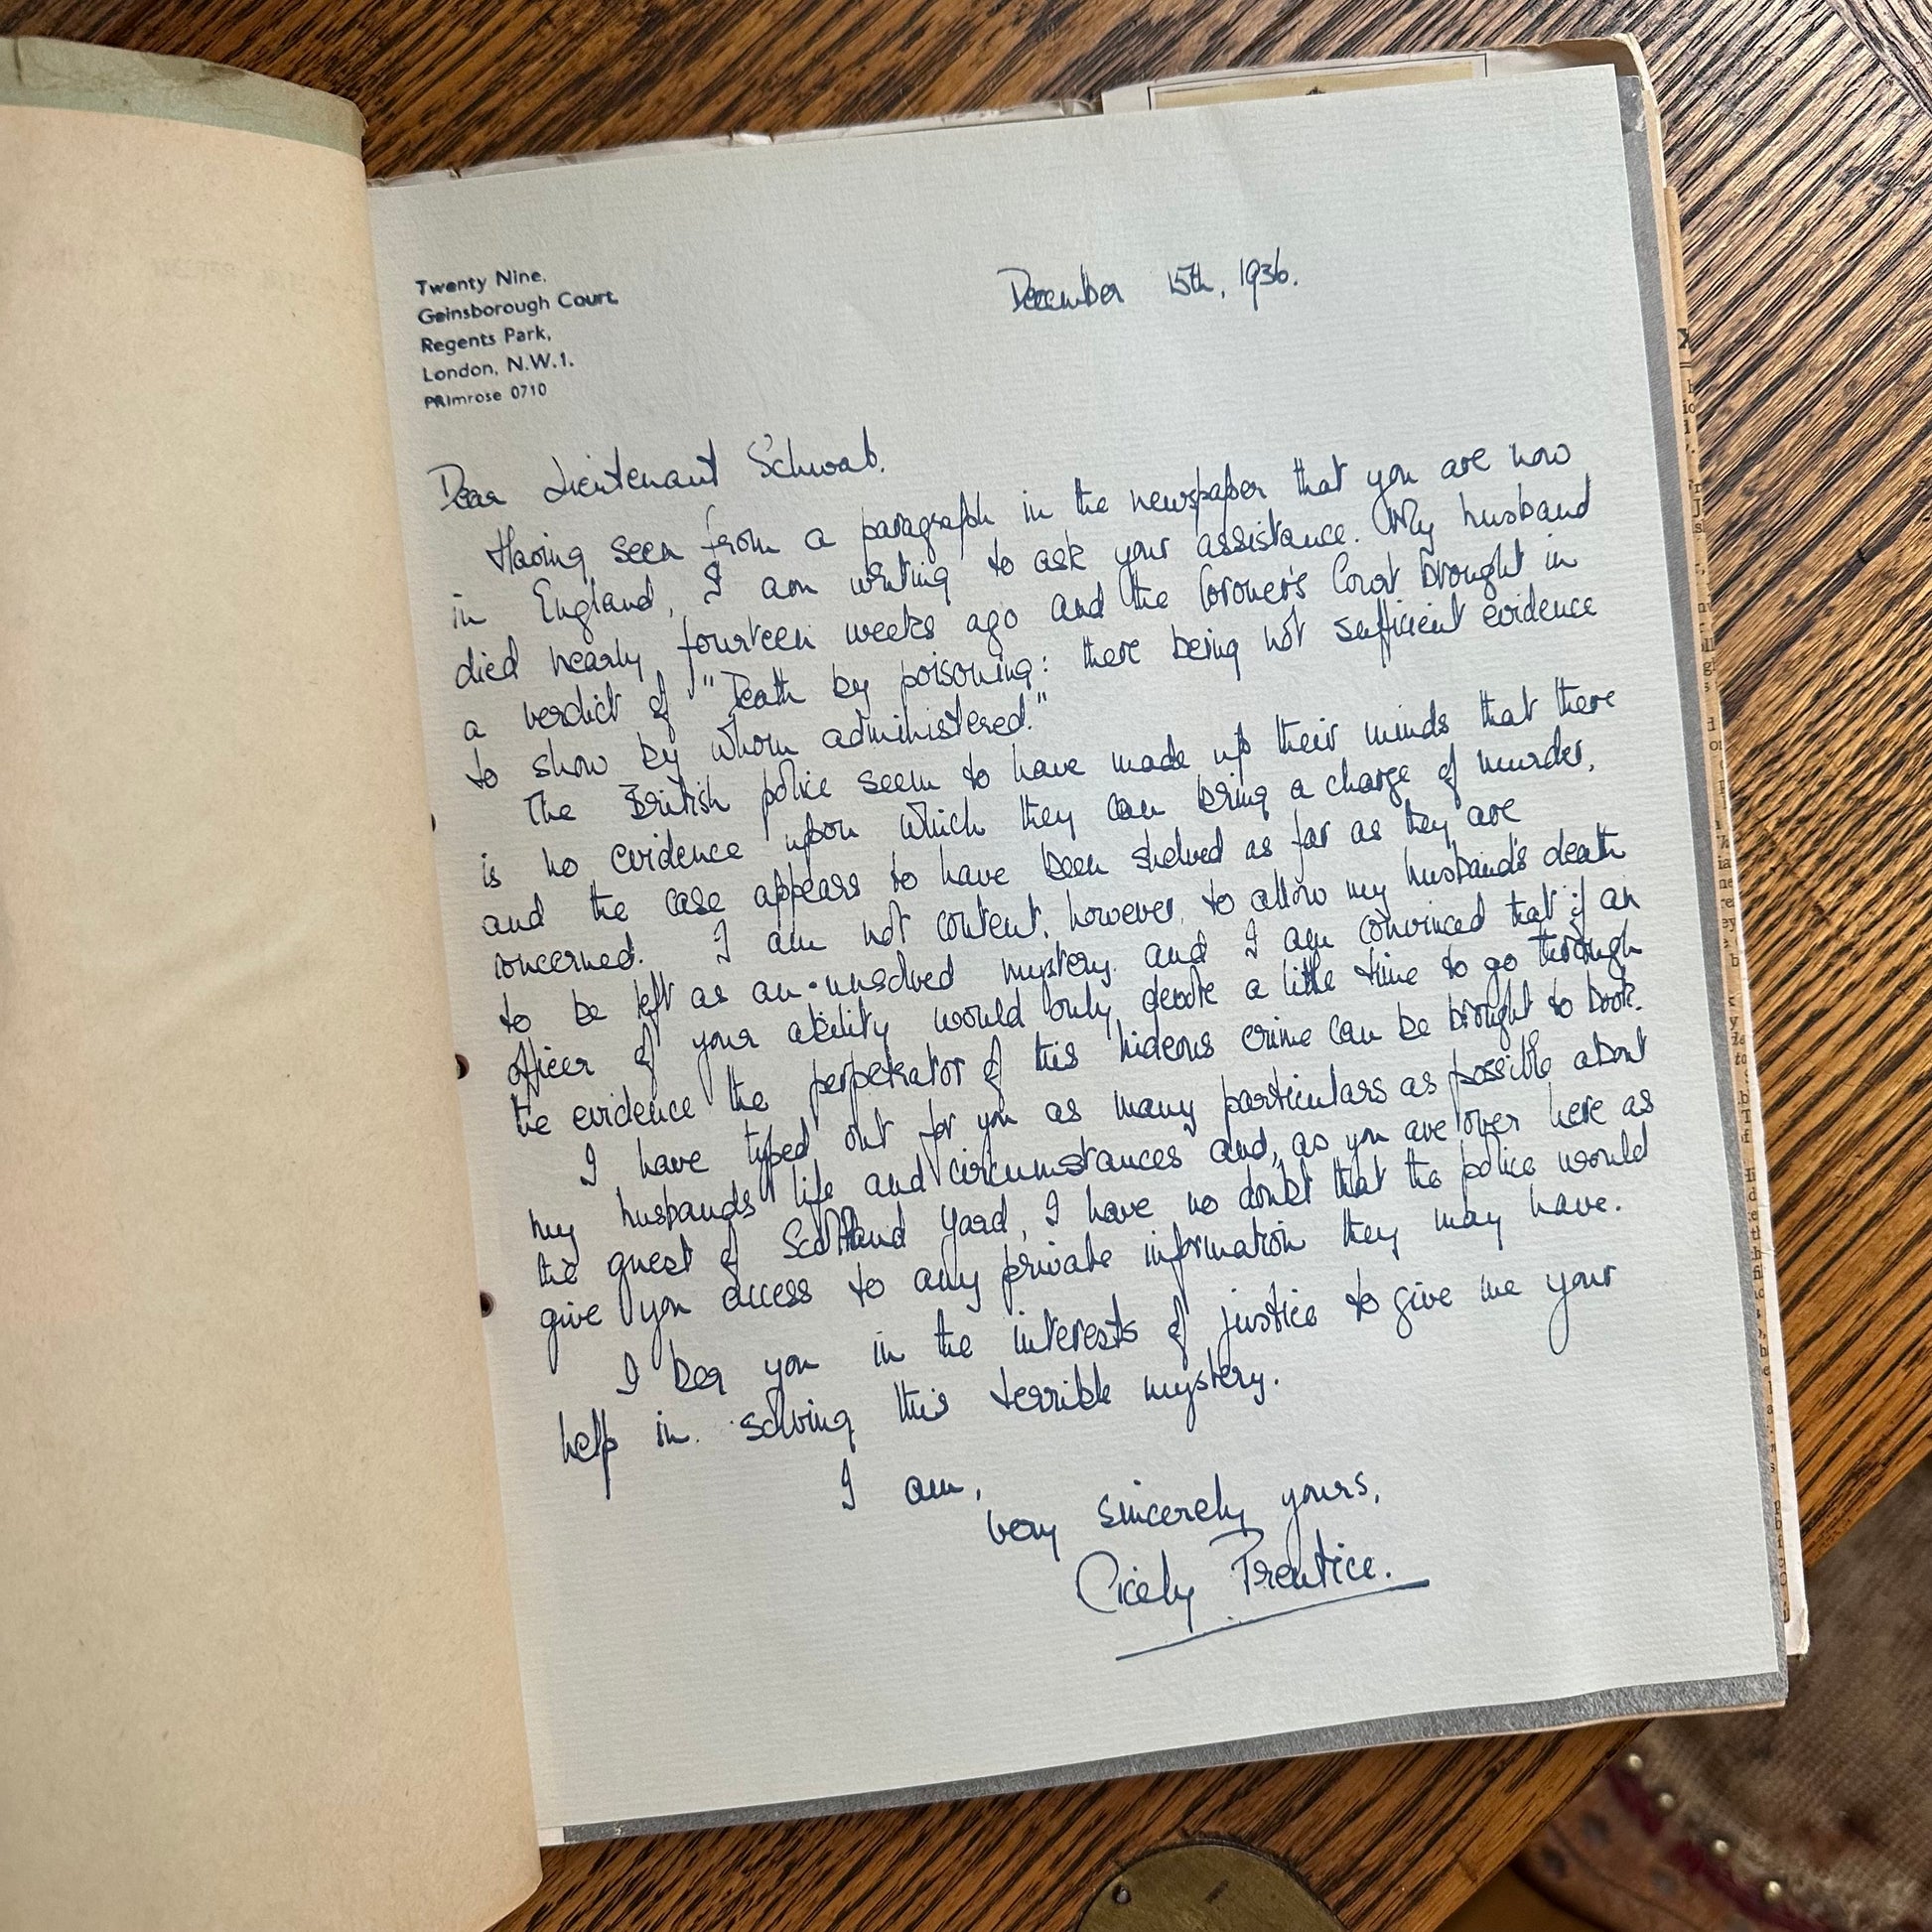 Twenty Nine,
Gainsborough Court,
Regents Park,
London, N.W.1.
PRImrose 0710
December 15th, 1936.
Dear Lieutenant Schwab,
Having seen from a paragraph in the newspaper that you are now
in England, I am writing to ask your assistance. My husband
died nearly fourteen weeks ago and the Coroner's Court brought in
a verdict of "Death by poisoning: there being not sufficient evidence
to show by whom administered."
The British police seem to have made up their minds that there
is no evidence upon which they can bring a charge of murder,
and the case appears to have been shelved as far as they are
concerned. I am not content, however, to allow my husband's death
to be left as an unsolved mystery and I am convinced that if an
officer of your ability would only devote a little time to go through
the evidence the perpetrator of this hideous crime can be brought to book.
I have typed out for you as many particulars as possible about
my husbands life and circumstances and, as you are over here as
the guest of Scotland Yard, I have no doubt that the police would
give you access to any private information they may have.
I beg you in the interests of justice to give me your
help in solving this terrible mystery.
I am,
Very sincerely yours,
Cicely Prentice.